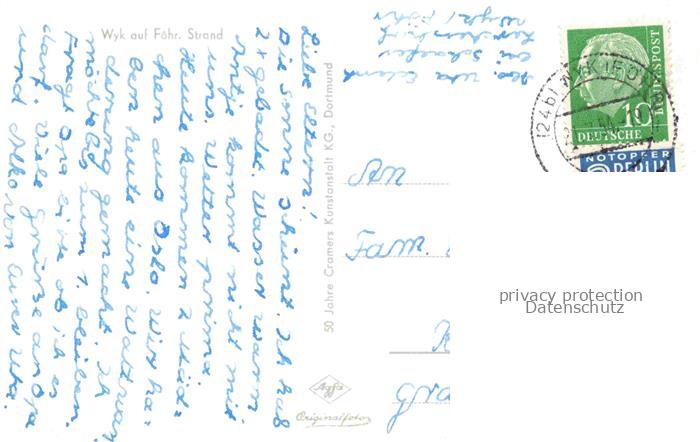 Wyk auf Föhr. Strand
Liebe Eltern!
Die Sonne scheint. Ich hab
2x gebadet. Wasser warm
Antje kommt nicht mit
uns. Wetter prima
Heute kommen 2 Mäd=
chen aus Oslo. Wir ha=
ben heute eine Wattwan
derung gemacht. Ich
möchte bis zum 1. bleiben.
Fragt Opa bitte ob ich es
darf. Viele Grüße an Opa
und Alko von Eurer Uta.
50 Jahre Cramers Kunstanstalt KG., Dortmund
Agfa
Originalfoto
Wyk / Föhr
An
Fam.
DEUTSCHE
BUNDESPOST
10
NOTOPFER
BERLIN
(24b) WYK (FÖHR)
privacy protection
Datenschutz